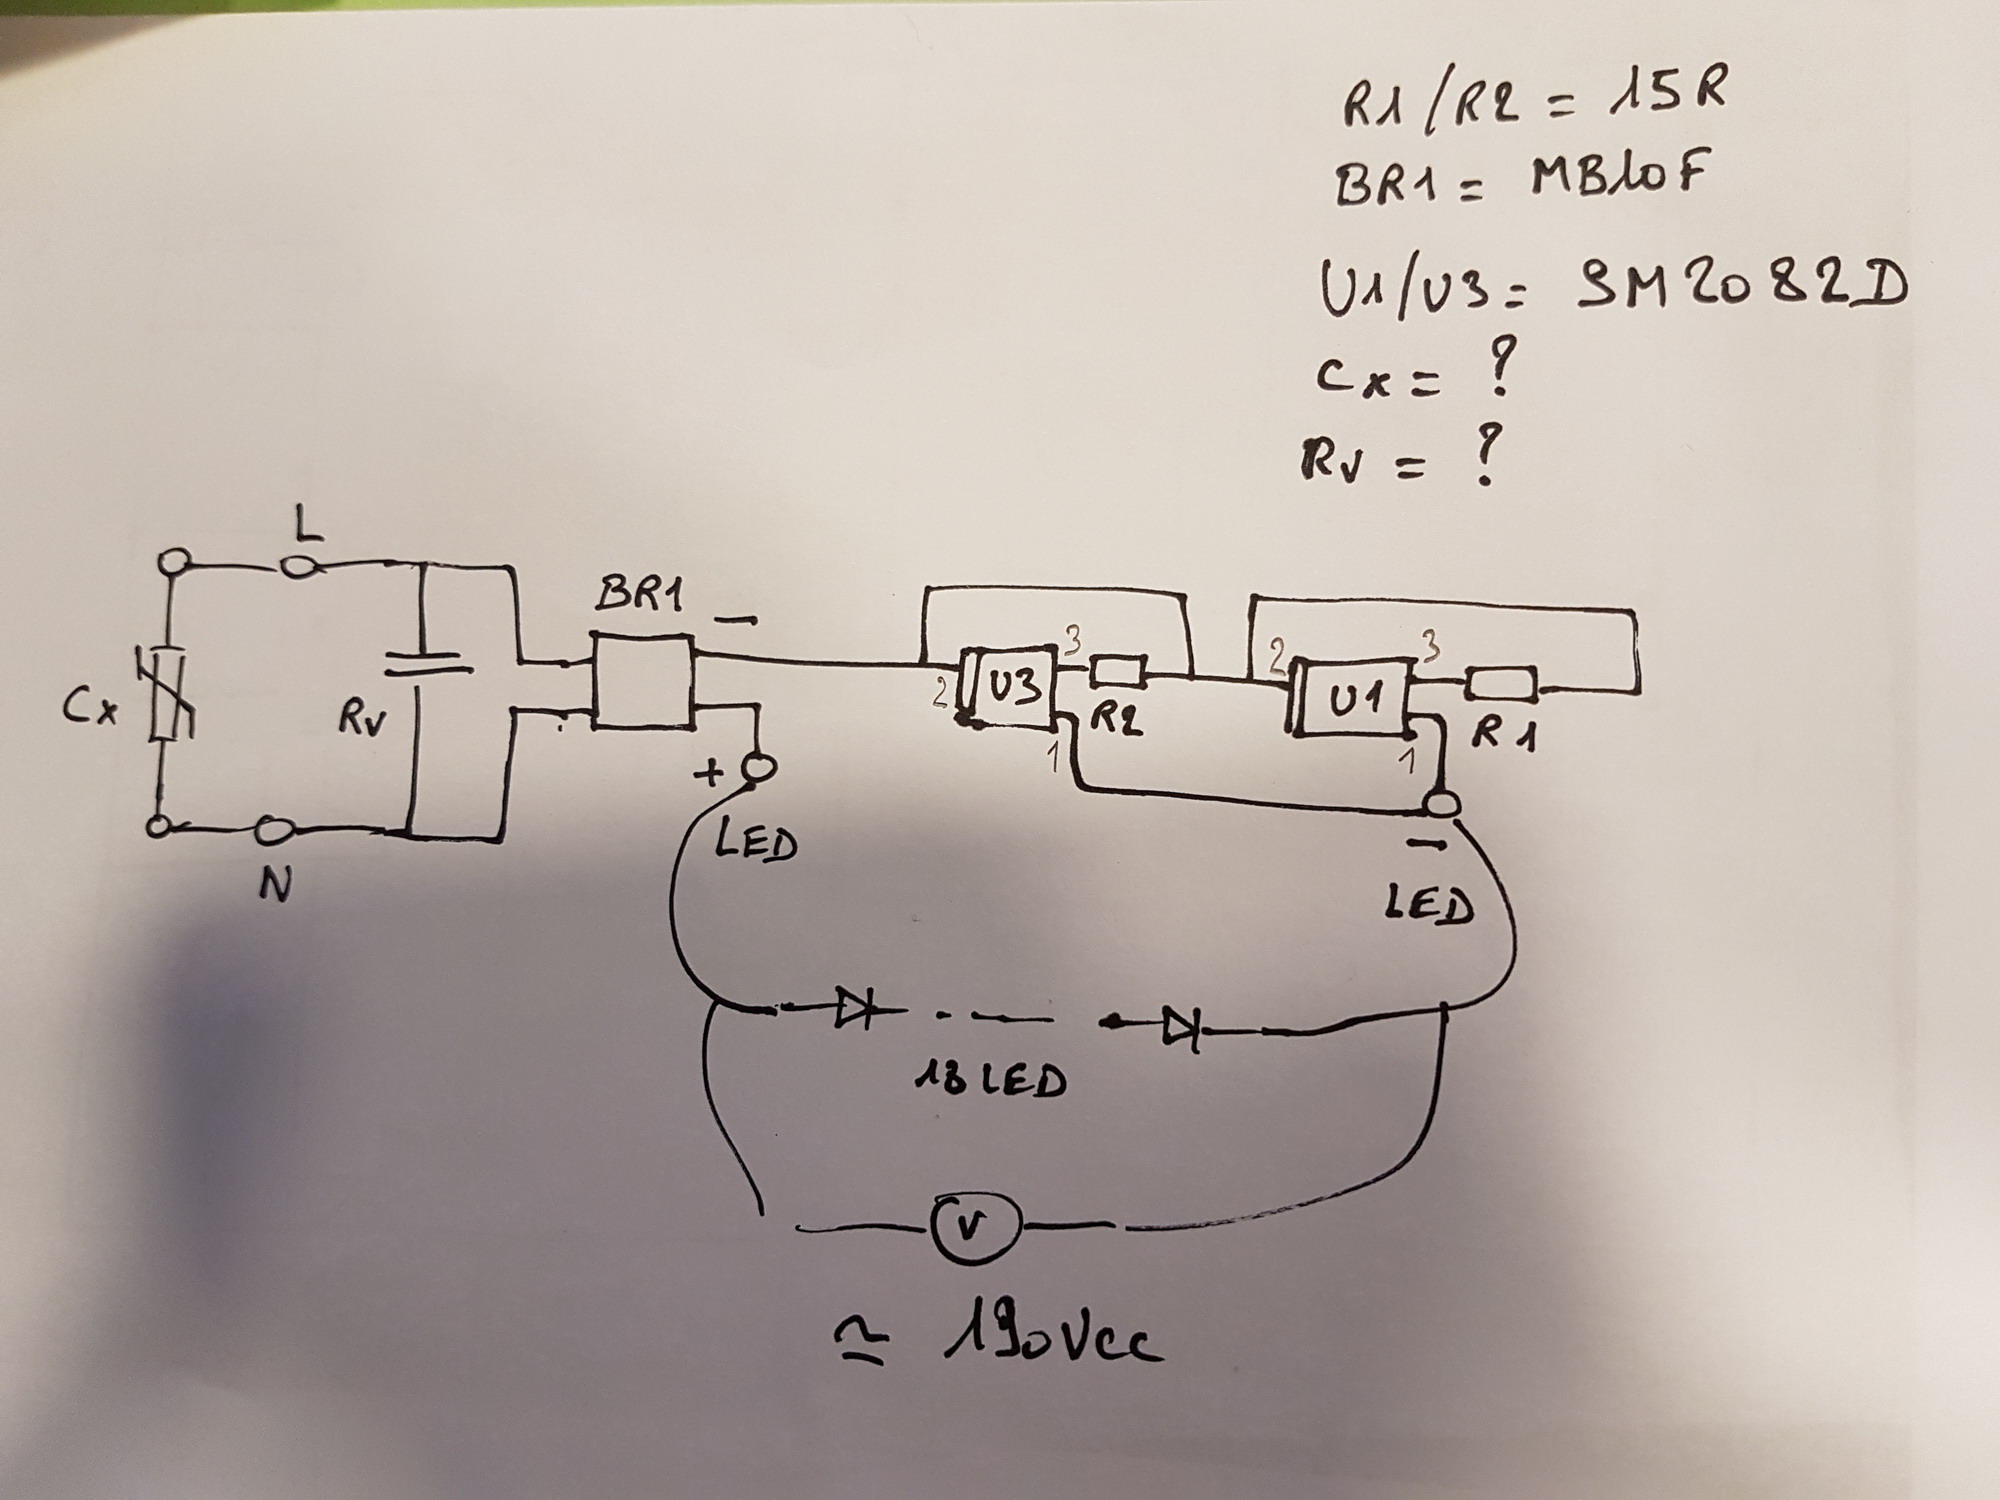 R1/R2 = 15R
BR1 = MB10F
U1/U3 = SM2082D
Cx = ?
Rv = ?
L
BR1
-
3
3
2
2
U3
U1
Cx
Rv
R2
R1
1
1
+
LED
-
N
LED
18 LED
V
≃ 190Vcc